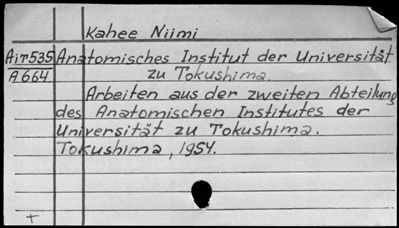 Kahee Niimi
AiT535 Anatomisches Institut der Universität
A664 zu Tokushima.
Arbeiten aus der zweiten Abteilung
des Anatomischen Institutes der
Universität zu Tokushima.
Tokushima, 1954.
+